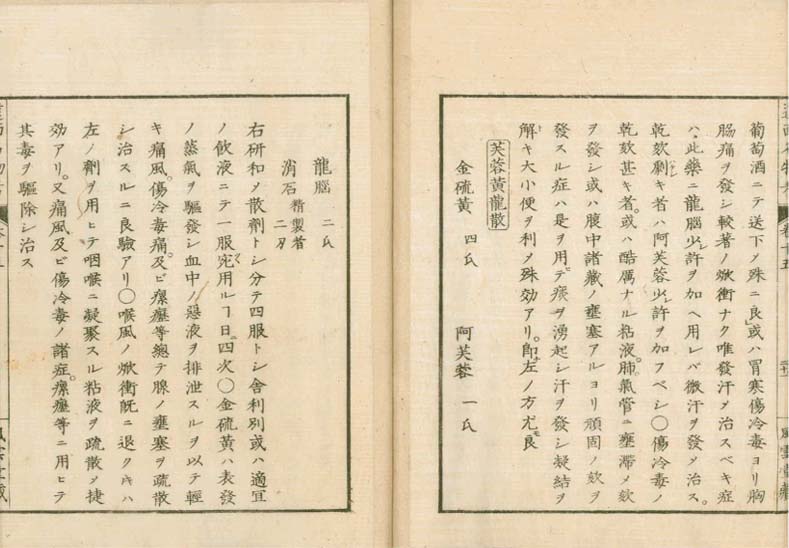 葡萄酒ニテ送下メ殊ニ良。或ハ冒寒傷冷毒ヨリ胸
腸痛ヲ發シ較著ノ焮衝ナク唯發汗メ治スベキ症
ハ、此藥ニ龍腦少許ヲ加ヘ用レバ微汗ヲ發メ治ス。
乾欬劇キ者ハ阿芙蓉少許ヲ加フベシ〇傷冷毒ノ
乾欬甚キ者。或ハ酷厲ナル粘液。肺氣管ニ壅滯メ欬
ヲ發シ或ハ腹中諸藏ノ壅塞アルヨリ頑固ノ欬ヲ
發スル症ハ是ヲ用テ痰ヲ湧起シ汗ヲ發シ凝結ヲ
解キ大小便ヲ利メ殊効アリ。即左ノ方尤良
芙蓉黃龍散
金硫黃 四氏 阿芙蓉 一氏
龍腦 二氏
消石 精製者 二刃
右研和メ散劑トシ分テ四服トシ舍利別或ハ適宜
ノ飲液ニテ一服宛用ルヿ日四次〇金硫黃ハ表發
ノ蒸氣ヲ驅發シ血中ノ惡液ヲ排泄スルヲ以テ輕
キ痛風。傷冷毒痛。及ビ瘰癧等總テ腺ノ壅塞ヲ疏散
シ治スルニ良驗アリ〇喉風ノ焮衝旣ニ退クキハ
左ノ劑ヲ用ヒテ咽喉ニ凝聚スル粘液ヲ疏散メ捷
効アリ。又痛風及ビ傷冷毒ノ諸症。瘰癧等ニ用ヒテ
其毒ヲ驅除シ治ス
卷十五